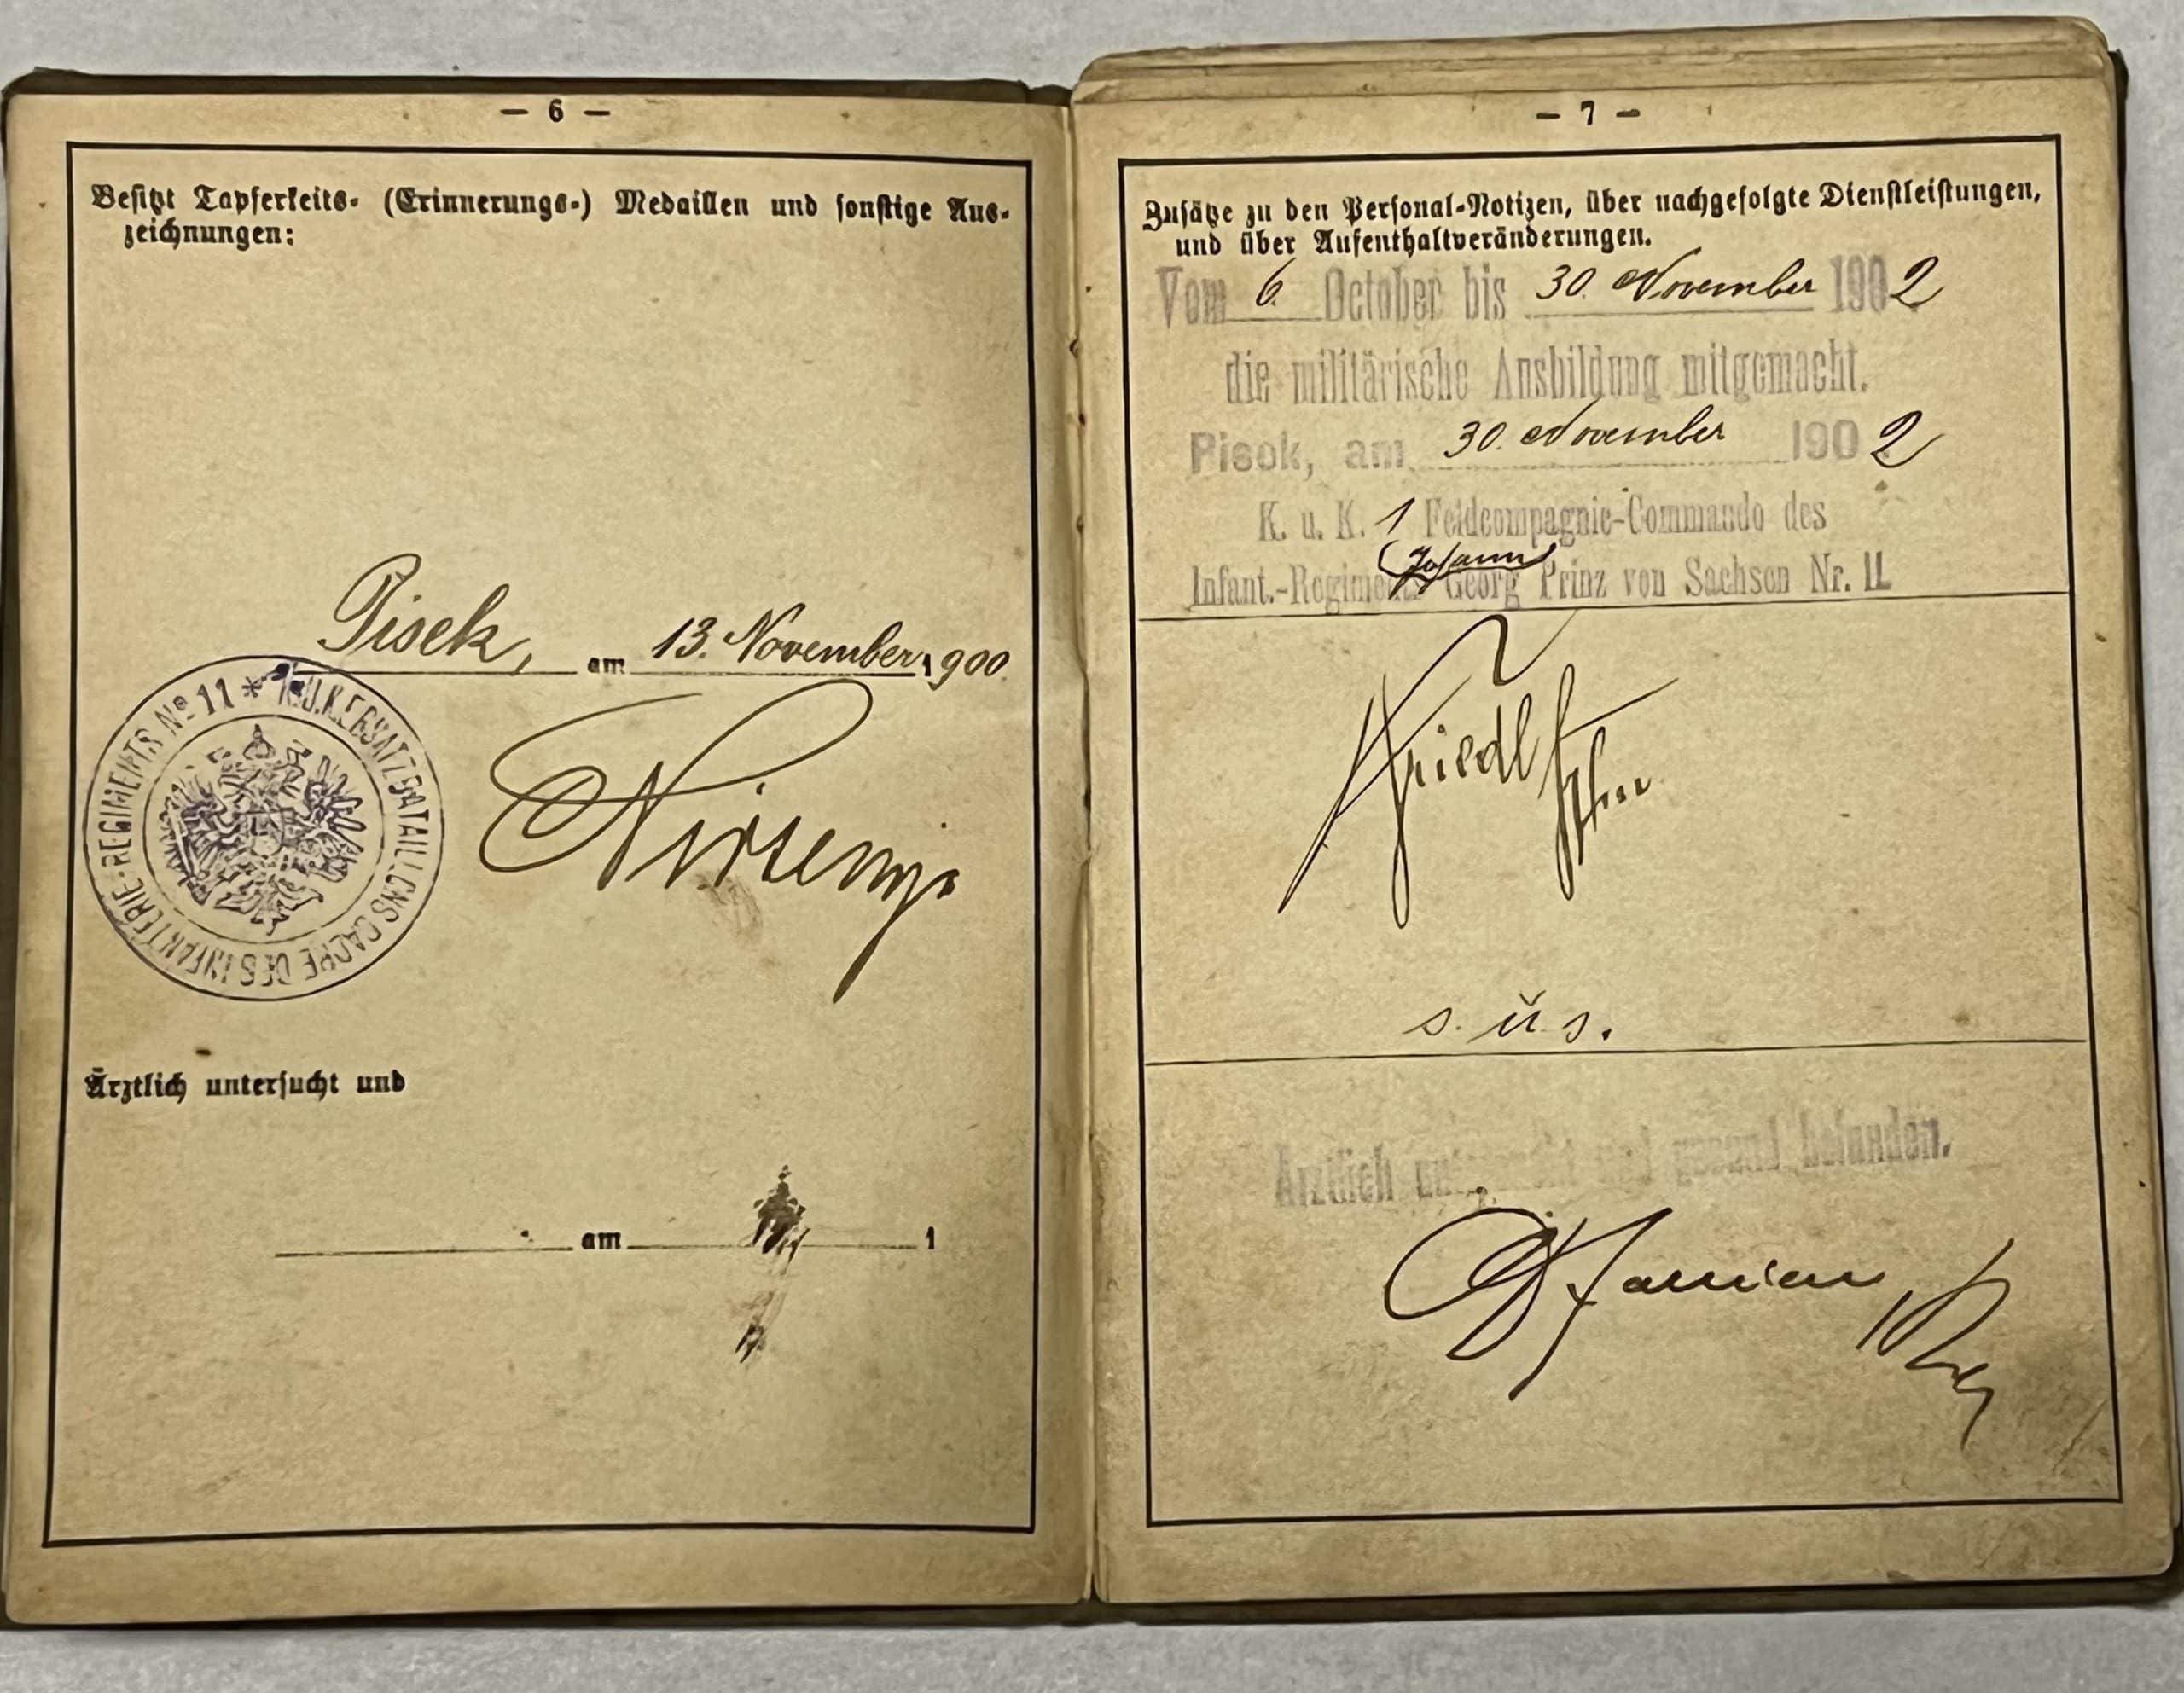 — 6 —
Besitzt Tapferkeits- (Erinnerungs-) Medaillen und sonstige Aus-
zeichnungen:
Pisek, am 13. November 1900.
K.U.K. ERSATZBATAILLONS CADRE DES INFANTERIE-REGIMENTS No 11 *
Ärztlich untersucht und
am 1
— 7 —
Zusätze zu den Personal-Notizen, über nachgefolgte Dienstleistungen,
und über Aufenthaltveränderungen.
Vom 6. October bis 30. November 1902
die militärische Ausbildung mitgemacht.
Pisek, am 30. November 1902
K. u. K. 1 Feldcompagnie-Commando des
Johann
Infant.-Regiments Georg Prinz von Sachsen Nr. 11
Friedl
Ärztlich untersucht und gesund befunden.